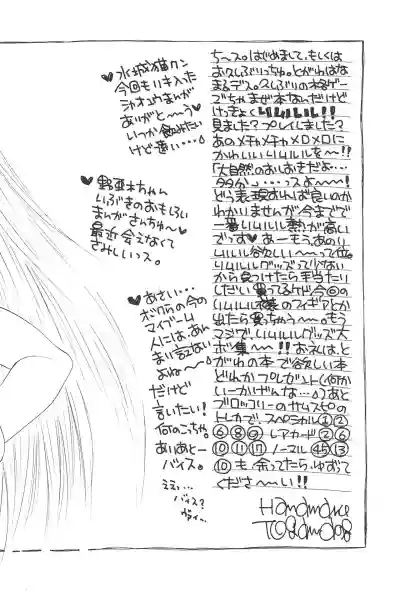 ちースっ。はじめまして、もしくは
お久しぶりっちゅ。とがわはな
まるデス。久しぶりの格ゲー
ごちゃまぜ本なんだけど
けっきょくリムルル!!
見ました?プレイしました?
あのメチャメチャメロメロに
かわいいリムルルを〜!!
「大自然のおしおきだよ…
多分」…ってよ〜〜!
どう表現すれば良いのか
わかりませんが今までで
一番リムルル熱が高い
でっす♥あーもう、あのリ
ムルル欲しい〜〜って位。
リムルルグッズって少ない
から見つけたら手当たり
しだい買ってるケド今回の
リムルル様のフィギアとか
出たら買っちゃう〜。もう
マジでリムルルグッズ大
ボ集〜!!お礼は、と
がわの本で欲しい本
どれかプレゼント(何か
いーかげんな…。)あと
ブロッコリーのサムスピの
トレカで、スペシャル①②
⑥⑧⑨レアカード②⑥
⑩⑪⑰ノーマル㊺⑬
⑩も余ってたら、ゆずって
くださ〜い!!
♥水城猫クン
今回もリキ入った
まんが
ありがと〜う♥
いつか飲みたい
けど遠い…。
♥野亜木ちゃん
いぶきのおもしろい
まんがさんちゅ〜♥
最近会えなくて
さみしいっス。
♥あさい…
ボクらの今の
マイブーム
人には、あんま
まり言えない
よね〜
だけど
言いたい!
何のこっちゃ。
ありあとー
バイス。
ええ…
バイス?
ヴァイ…